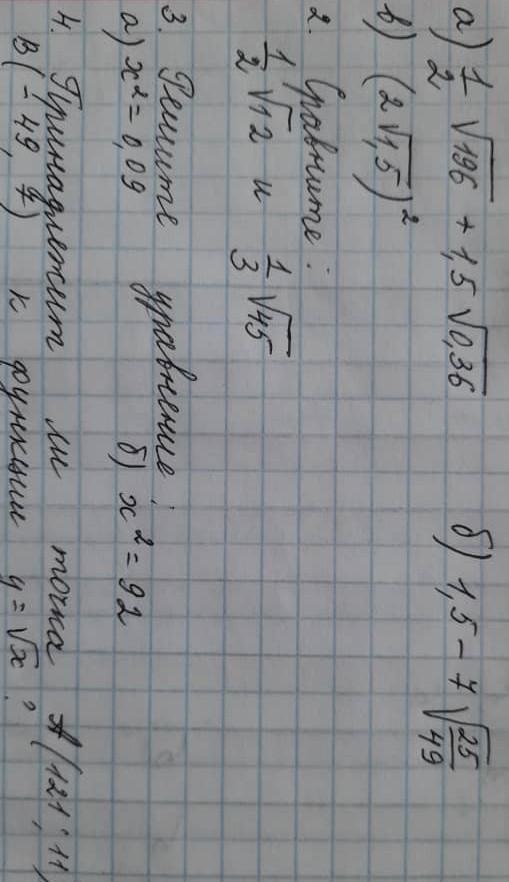 а) 1/2 √196 + 1,5 √0,36 б) 1,5 - 7 √25/49
в) (2√1,5)²
2. Сравните:
1/2 √12 и 1/3 √45
3. Решите уравнение:
а) x² = 0,09 б) x² = 92
4. Принадлежит ли точка A(121; 11)
B(-49, 7) к функции y = √x ?